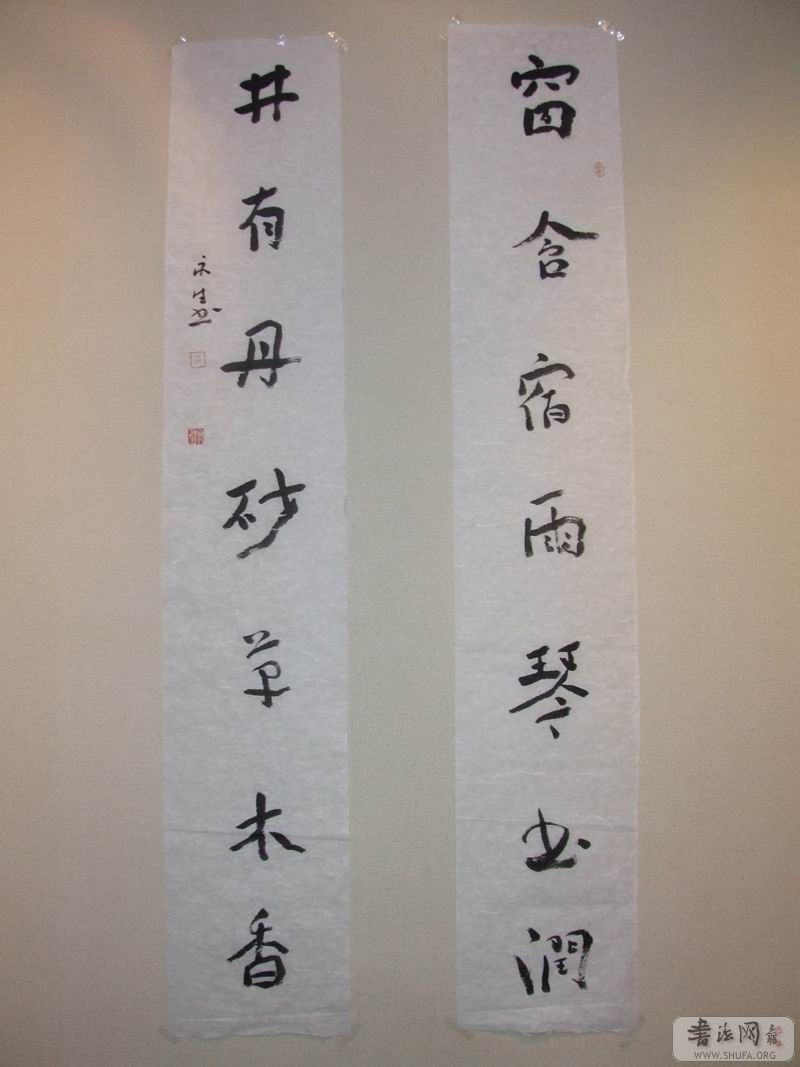 窗含宿雨琴书潤
井有丹砂草木香
书法网
WWW.SHUFA.ORG